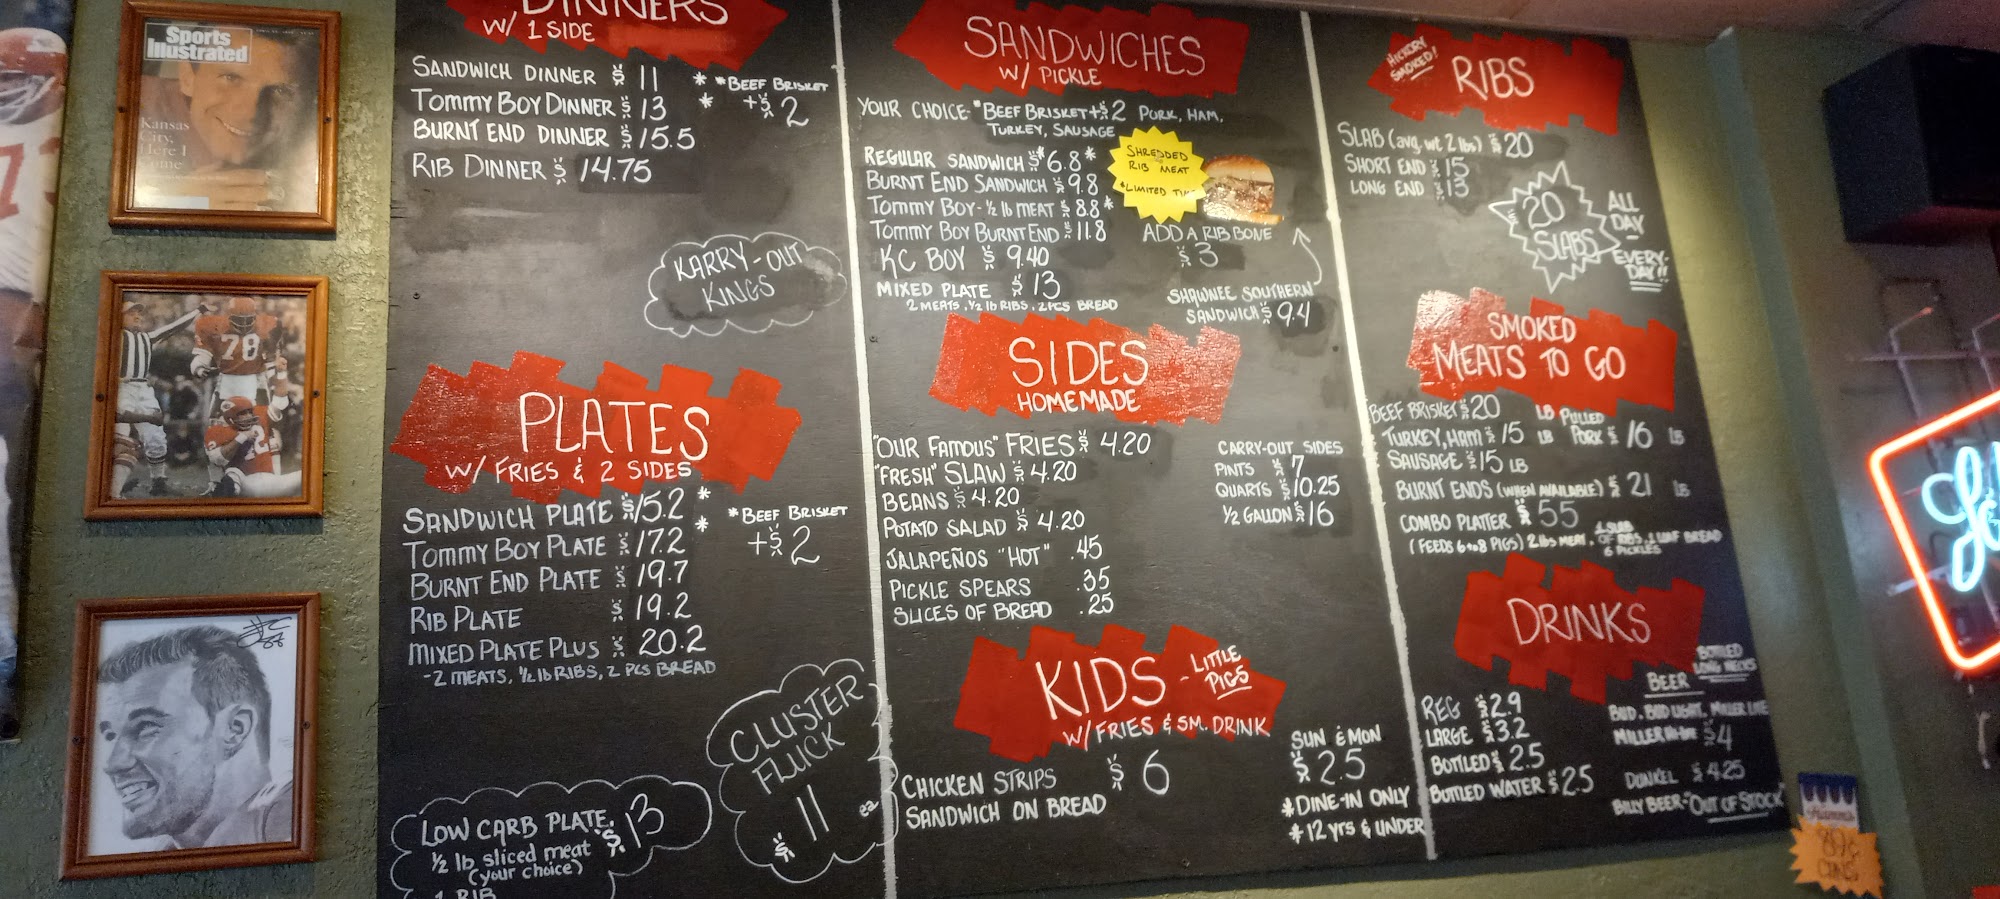 Sports
Illustrated
Kansas
City,
Here I
Come
78
DINNERS
W/ 1 SIDE
SANDWICH DINNER $ 11 *
TOMMY BOY DINNER $ 13 *
BURNT END DINNER $ 15.5
RIB DINNER $ 14.75
*BEEF BRISKET
+$ 2
KARRY-OUT
KINGS
PLATES
W/ FRIES & 2 SIDES
SANDWICH PLATE $ 15.2 *
TOMMY BOY PLATE $ 17.2 *
BURNT END PLATE $ 19.7
RIB PLATE $ 19.2
MIXED PLATE PLUS $ 20.2
-2 MEATS, 1/2 lb RIBS, 2 PCS BREAD
*BEEF BRISKET
+$ 2
LOW CARB PLATE $ 13
1/2 lb sliced meat
(your choice)
1 RIB
CLUSTER
FLUCK
$ 11 ea
SANDWICHES
W/ PICKLE
YOUR CHOICE- *BEEF BRISKET+$2 PORK, HAM,
TURKEY, SAUSAGE
REGULAR SANDWICH $ 6.8*
BURNT END SANDWICH $ 9.8
TOMMY BOY - 1/2 lb MEAT $ 8.8*
TOMMY BOY BURNT END $ 11.8
KC BOY $ 9.40
MIXED PLATE $ 13
2 MEATS, 1/2 lb RIBS, 2 PCS BREAD
SHREDDED
RIB MEAT
*LIMITED
ADD A RIB BONE
$ 3
SHAWNEE SOUTHERN
SANDWICH $ 9.4
SIDES
HOMEMADE
"OUR FAMOUS" FRIES $ 4.20
"FRESH" SLAW $ 4.20
BEANS $ 4.20
POTATO SALAD $ 4.20
JALAPEÑOS "HOT" .45
PICKLE SPEARS .35
SLICES OF BREAD .25
CARRY-OUT SIDES
PINTS $ 7
QUARTS $ 10.25
1/2 GALLON $ 16
KIDS - LITTLE
PIGS
W/ FRIES & SM. DRINK
CHICKEN STRIPS $ 6
SANDWICH ON BREAD
SUN & MON
$ 2.5
*DINE-IN ONLY
*12 yrs & UNDER
HICKORY
SMOKED!
RIBS
SLAB (avg. wt 2 lbs) $ 20
SHORT END $ 15
LONG END $ 13
$20
SLABS
ALL
DAY
EVERY-
DAY!!
SMOKED
MEATS TO GO
BEEF BRISKET $ 20 LB
TURKEY, HAM $ 15 LB
SAUSAGE $ 15 LB
PULLED
PORK $ 16 LB
BURNT ENDS (WHEN AVAILABLE) $ 21 LB
COMBO PLATTER $ 55
(FEEDS 6 to 8 PIGS) 2 lbs MEAT, 1 SLAB OF RIBS, 1 LOAF BREAD
6 PICKLES
DRINKS
REG $ 2.9
LARGE $ 3.2
BOTTLED $ 2.5
BOTTLED WATER $ 2.5
BEER
BOTTLED
LONG NECKS
BUD, BUD LIGHT, MILLER LITE
MILLER $ 4
DUNKEL $ 4.25
BILLY BEER-"OUT OF STOCK"
Hamm's
89¢
CANS